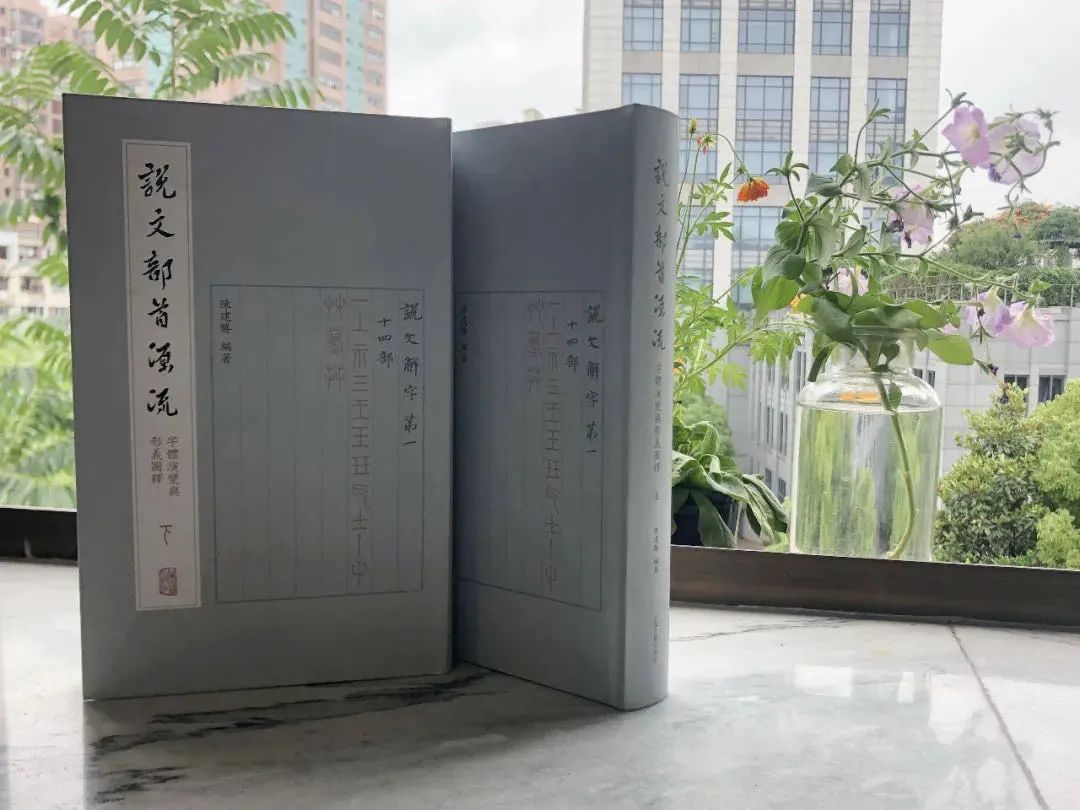 說文部首源流
字體演變與
形義圖釋
下
陳建勝 編著
說文解字 第一
十四部
一丄示三王玉玨气士丨屮
艸蓐茻
說文部首源流
字體演變與形義圖釋
上
陳建勝 編著
說文解字 第一
十四部
一丄示三王玉玨气士丨屮
艸蓐茻